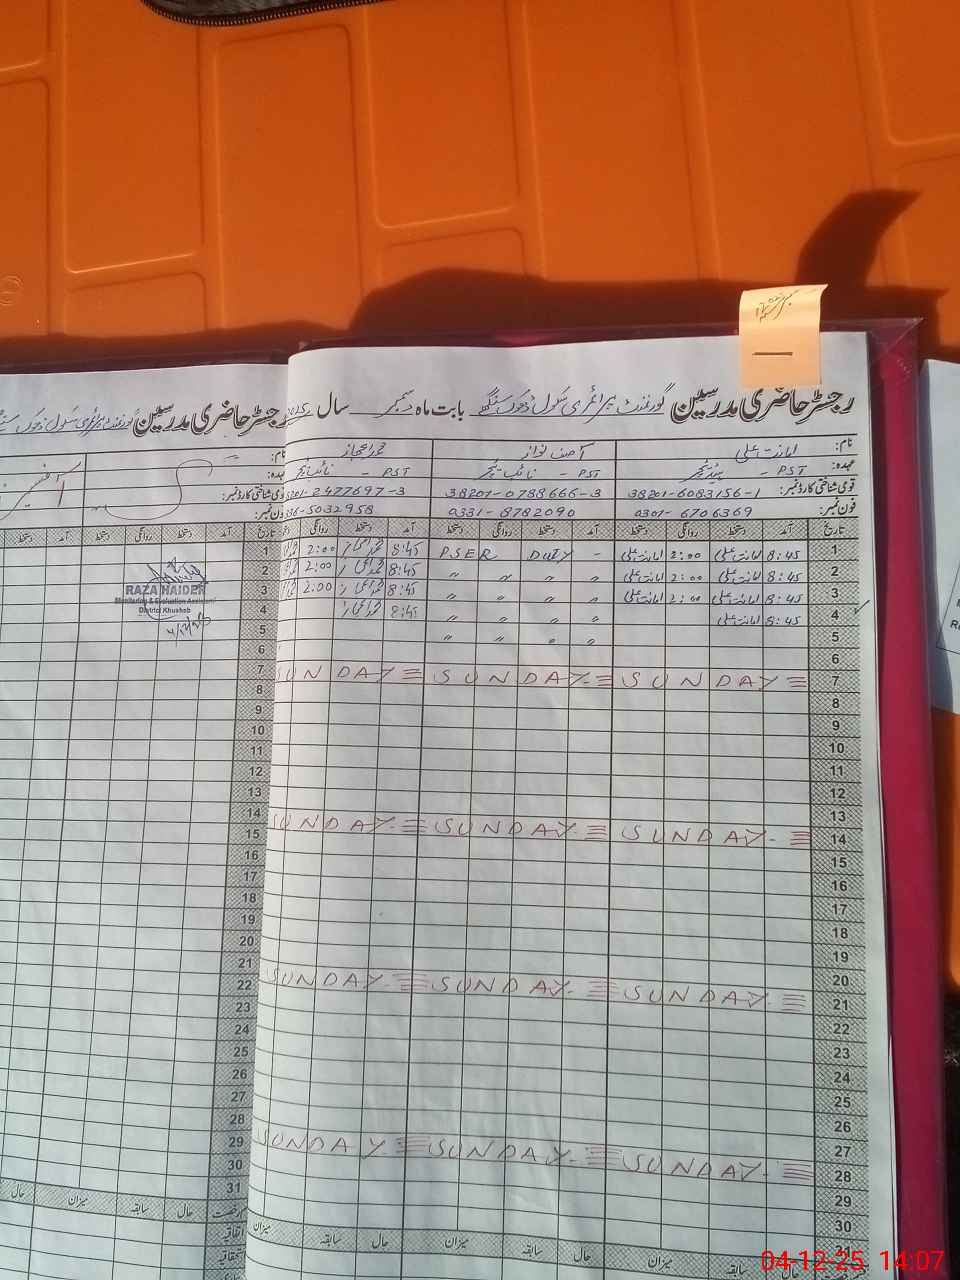 رجسٹر حاضری مدرسین گورنمنٹ پرائمری سکول ڈھوک بابت ماہ دسمبر سال 2025
نام: امانت علی آصف نواز محمد اعجاز
عہدہ: PST - ہیڈ ٹیچر PST - نائب ٹیچر PST - نائب ٹیچر
قومی شناختی کارڈ نمبر: 38201-6083156-1 38201-0788666-3 38201-2477697-3
فون نمبر: 0301-6706369 0331-8782090 5032958
تاریخ آمد دستخط روانگی دستخط آمد دستخط روانگی دستخط آمد دستخط روانگی
1 8:45 امانت علی 2:00 امانت علی PSER DUTY - 8:45 2:00
2 8:45 امانت علی 2:00 امانت علی 〃 〃 〃 〃 8:45 2:00
3 8:45 امانت علی 2:00 امانت علی 〃 〃 〃 〃 8:45 2:00
4 8:45 امانت علی 〃 〃 〃 〃 8:45
5 〃 〃 〃 〃
6
7 SUNDAY SUNDAY SUNDAY
8
9
10
11
12
13
14 SUNDAY SUNDAY SUNDAY
15
16
17
18
19
20
21 SUNDAY SUNDAY SUNDAY
22
23
24
25
26
27
28 SUNDAY SUNDAY SUNDAY
29
30
31
میزان حال سابقہ میزان حال سابقہ میزان
رجسٹر حاضری مدرسین گورنمنٹ پرائمری سکول ڈھوک
نام:
عہدہ:
قومی شناختی کارڈ نمبر:
فون نمبر:
تاریخ آمد دستخط روانگی دستخط آمد دستخط
1
2
3
4
5
6
7
8
9
10
11
12
13
14
15
16
17
18
19
20
21
22
23
24
25
26
27
28
29
30
31
RAZA HAIDER
Monitoring & Evaluation Assistant
District Khushab
4/12/25
رخصت حال سابقہ میزان حال
اتفاقیہ
استحقاقیہ
04-12-25 14:07